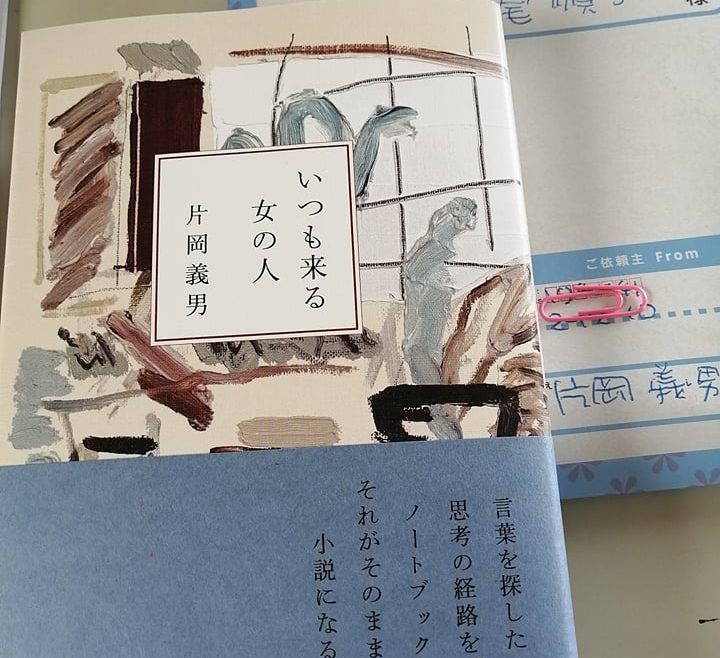 いつも来る
女の人
片岡義男
言葉を探した
思考の経路を
ノートブック
それがそのまま
小説になる
様
ご依頼主 From
片岡 義男